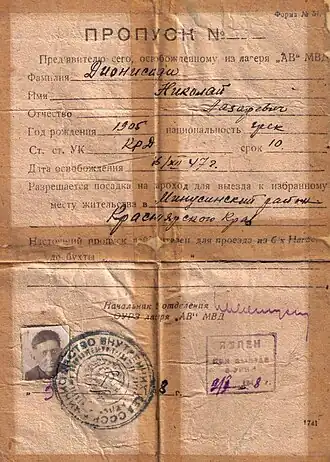 Форма № 5
ПРОПУСК №
Пред'явителю сего, освобожденному из лагеря "АВ" МВД
Фамилия Дионисиади
Имя Николай
Отчество Лазаревич
Год рождения 1905 национальность грек
Ст. ст. УК КРД срок 10
Дата освобождения 6/XII 47г.
Разрешается посадка на пароход для выезда к избранному
месту жительства в Минусинский район
Красноярского Края
Настоящий пропуск для проезда из б/х
до бухты
Начальник 2 отделения
ОУРЗ лагеря "АВ" МВД
МИНИСТЕРСТВО ВНУТРЕННИХ СССР
8
174